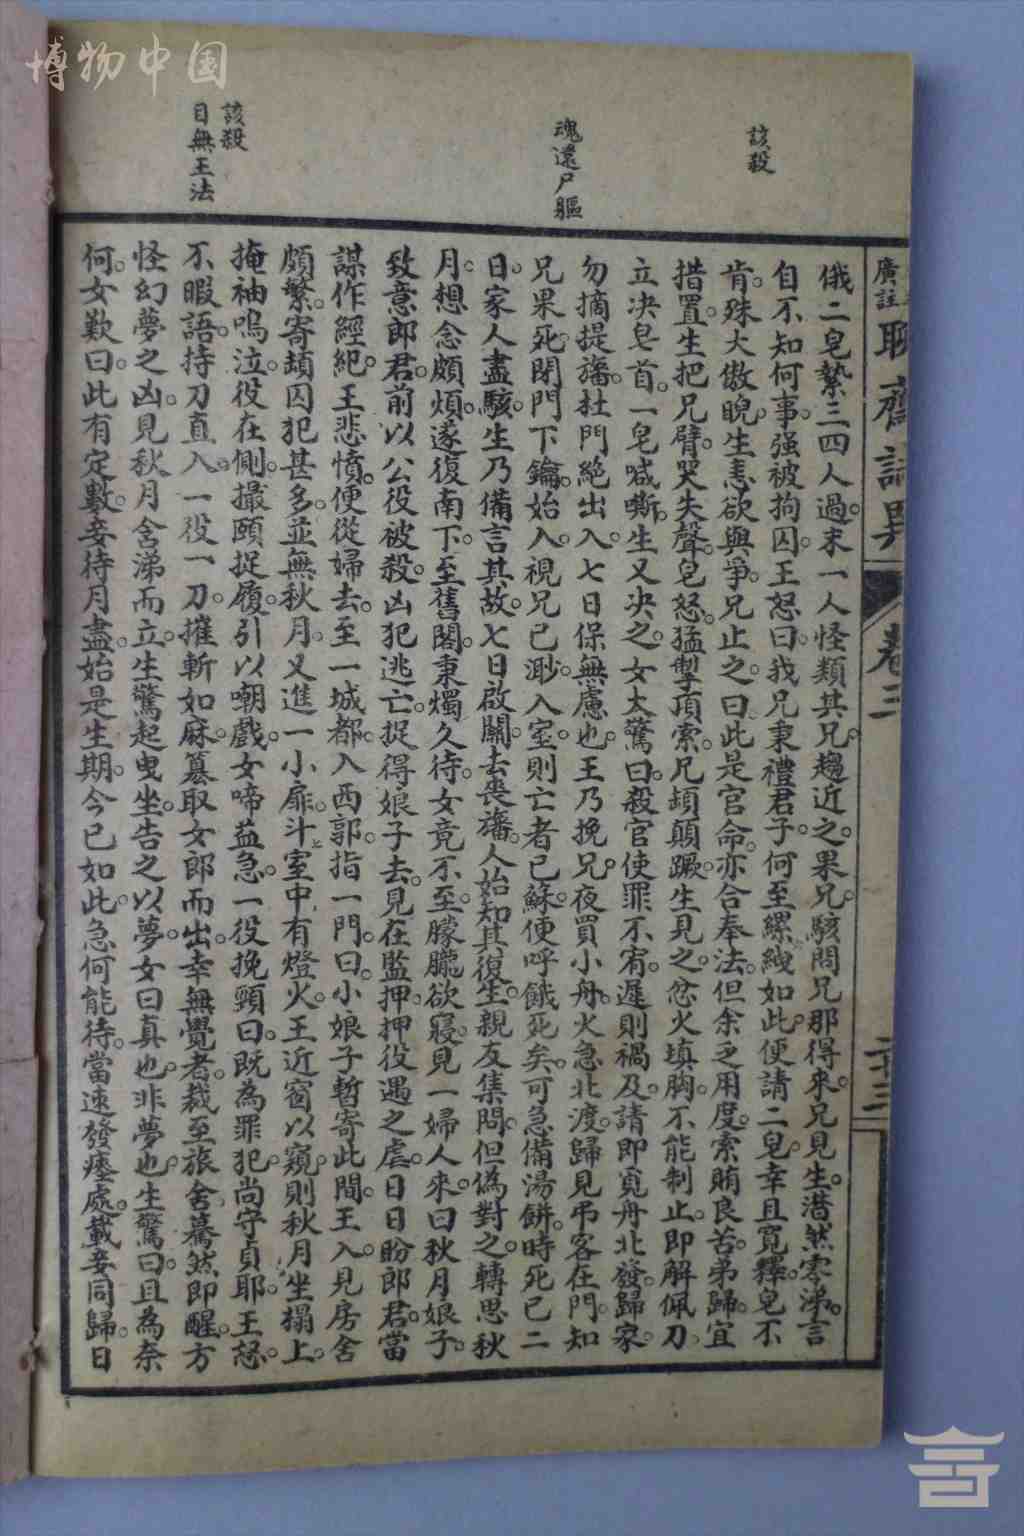 博物中国
該殺
魂還尸軀
該殺
目無王法
廣註聊齋誌異 卷三 二十三
俄二皂縶三四人過末一人怪類其兄趨近之果兄駭問兄那得來兄見生潸然零涕言
自不知何事强被拘囚王怒曰我兄秉禮君子何至縲絏如此便請二皂幸且寬釋皂不
肯殊大傲睨生恚欲與爭兄止之曰此是官命亦合奉法但余乏用度索賄良苦弟歸宜
措置生把兄臂哭失聲皂怒猛掣項索兄頓顛蹶生見之忿火填胸不能制止即解佩刀
立决皂首一皂喊嘶生又决之女大驚曰殺官使罪不宥遲則禍及請即覓舟北發歸家
勿摘提旛杜門絶出入七日保無慮也王乃挽兄夜買小舟火急北渡歸見弔客在門知
兄果死閉門下鑰始入視兄已渺入室則亡者已蘇便呼餓死矣可急備湯餅時死已二
日家人盡駭生乃備言其故七日啟關去喪旛人始知其復生親友集問但偽對之轉思秋
月想念頗煩遂復南下至舊閣秉燭久待女竟不至朦朧欲寢見一婦人來曰秋月娘子
致意郎君前以公役被殺凶犯逃亡捉得娘子去見在監押押役遇之虐日日盼郎君當
謀作經紀王悲憤便從婦去至一城都入西郭指一門曰小娘子暫寄此間王入見房舍
頗繁寄頓囚犯甚多並無秋月又進一小扉斗室中有燈火王近窗以窺則秋月坐榻上
掩袖嗚泣役在側撮頤捉履引以嘲戲女啼益急一役挽頸曰既為罪犯尚守貞耶王怒
不暇語持刀直入一役一刀摧斬如麻簒取女郎而出幸無覺者裁至旅舍驀然即醒方
怪幻夢之凶見秋月含涕而立生驚起曳坐告之以夢女曰真也非夢也生驚曰且為奈
何女歎曰此有定數妾待月盡始是生期今已如此急何能待當速發瘞處載妾同歸日